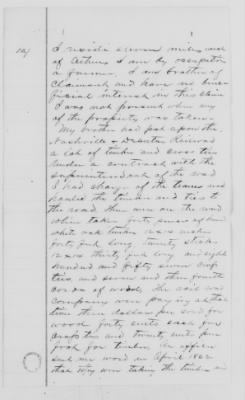 I reside seven miles west
of Athens I am by occupation
a farmer. I am brother of
Claimant and have no bene-
ficial interest in this claim
I was not present when any
of the property was taken.
My brother had put upon the
Nashville & Decatur Railroad
a lot of timber and cross ties
under a contract with the
superintendent of the road
I had charge of the teams and
hauled the timber and ties to
the road there were on the road
when taken forty pieces of
white oak timber 12x14 inches
forty feet long twenty sticks
12x14 thirty feet long and eight
hundred and fifty seven cross
ties, and seven and three fourth
cords of wood, the rail road
company were paying at that
time three dollars per cord for
wood forty cents each for
cross ties and twenty cents per
foot for timber An officer
sent me word in April 1862
that they were taking the timber and